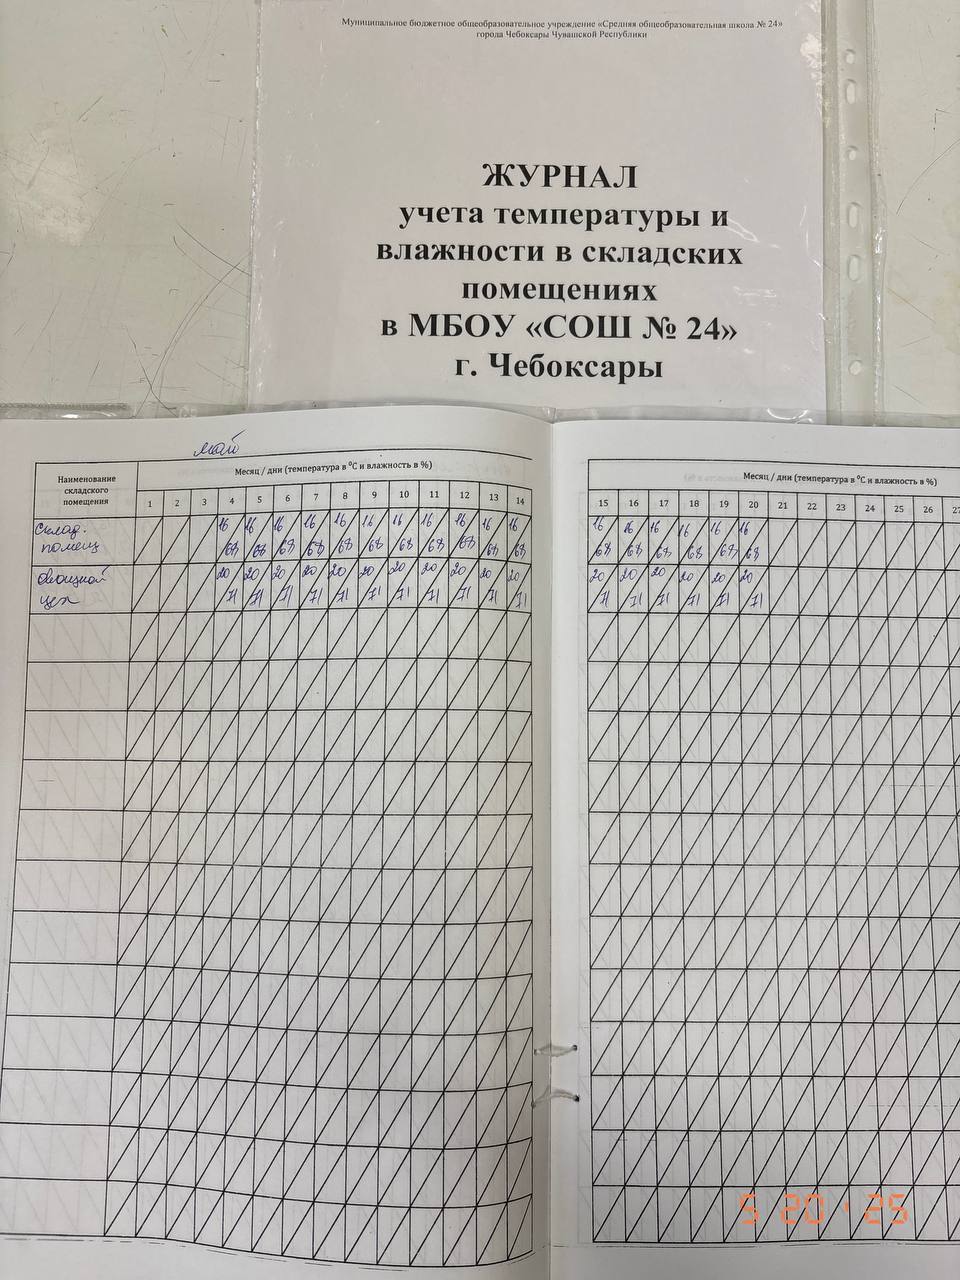 Муниципальное бюджетное общеобразовательное учреждение «Средняя общеобразовательная школа № 24»
города Чебоксары Чувашской Республики
ЖУРНАЛ
учета температуры и
влажности в складских
помещениях
в МБОУ «СОШ № 24»
г. Чебоксары
май
Наименование
складского
помещения
Месяц / дни (температура в ⁰С и влажность в %)
1 2 3 4 5 6 7 8 9 10 11 12 13 14
Склад. 16 16 16 16 16 16 16 16 16 16 16
помещ 68 68 68 68 68 68 68 68 68 68 68
Овощной 20 20 20 20 20 20 20 20 20 20 20
цех 71 71 71 71 71 71 71 71 71 71 71
Месяц / дни (температура в ⁰С и влажность в %)
15 16 17 18 19 20 21 22 23 24 25 26 27
16 16 16 16 16 16
68 68 68 68 68 68
20 20 20 20 20 20
71 71 71 71 71 71
5 20 '25